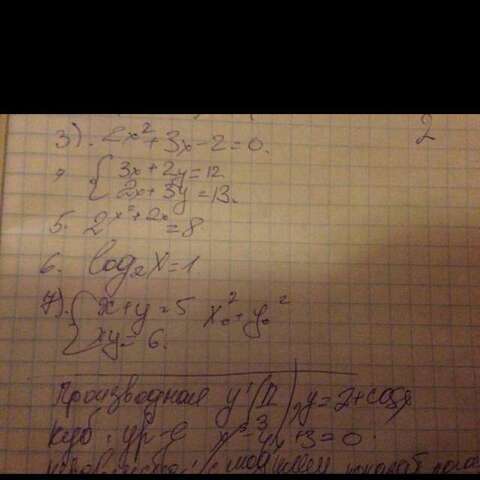 2
3). 2x²+3x-2=0.
{3x+2y=12
2x+3y=13.
5. 2^(x²+2x)=8
6. log₂x=1
7). {x+y=5 x₀²+y₀²
xy=6.
производная y'(π), y=2+cosx
куб. ур-е x³-4x+3=0.